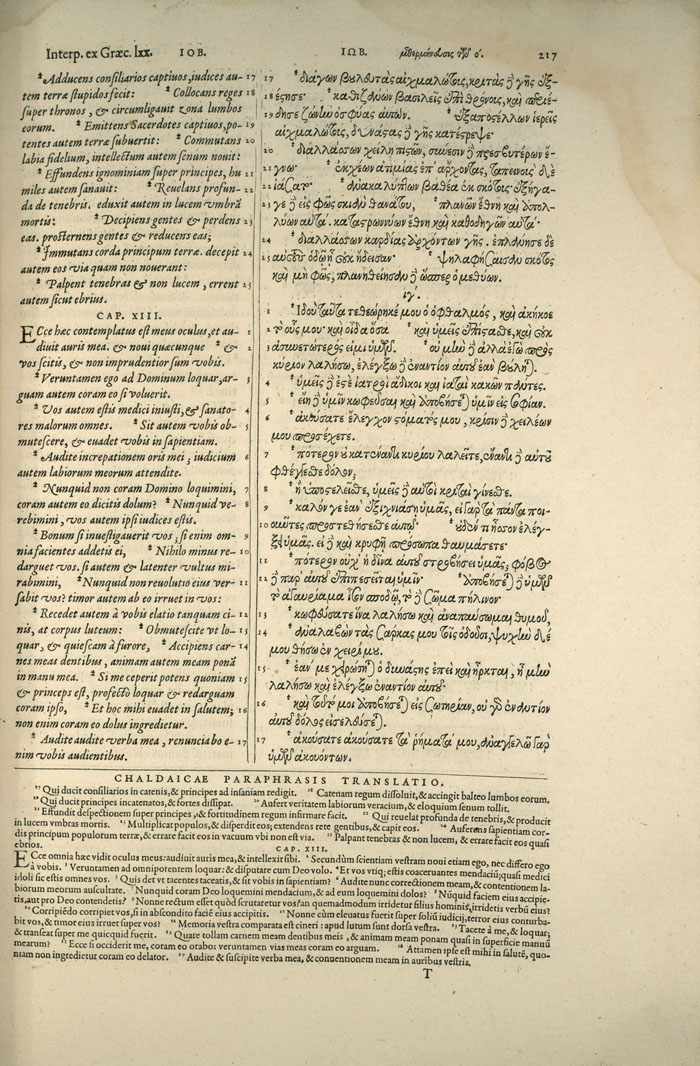 Interp. ex Græc. lxx. IOB.
ᵃ Adducens consiliarios captiuos, iudices au- 17
tem terræ stupidos fecit: ᵃ Collocans reges 18
super thronos, & circumligauit zona lumbos
eorum. ᵃ Emittens Sacerdotes captiuos, po- 19
tentes autem terræ subuertit: ᵃ Commutans 20
labia fidelium, intellectum autem senum nouit:
ᵃ Effundens ignominiam super principes, hu 21
miles autem sanauit: ᵃ Reuelans profun- 22
da de tenebris. eduxit autem in lucem vmbrā
mortis: ᵃ Decipiens gentes & perdens 23
eas. prosternens gentes & reducens eas;
ᵃ Immutans corda principum terræ. decepit 24
autem eos via quam non nouerant:
ᵃ Palpent tenebras & non lucem, errent 25
autem sicut ebrius.
CAP. XIII.
ECce hæc contemplatus est meus oculus, et au- 1
diuit auris mea. & noui quæcunque ᵃ & 2
vos scitis, & non imprudentior sum vobis.
ᵃ Veruntamen ego ad Dominum loquar, ar- 3
guam autem coram eo si voluerit.
ᵃ Vos autem estis medici iniusti, & sanato- 4
res malorum omnes. ᵃ Sit autem vobis ob- 5
mutescere, & euadet vobis in sapientiam.
ᵃ Audite increpationem oris mei, iudicium 6
autem labiorum meorum attendite.
ᵃ Nunquid non coram Domino loquimini, 7
coram autem eo dicitis dolum? ᵃ Nunquid ve- 8
rebimini, vos autem ipsi iudices estis.
ᵃ Bonum si inuestigauerit vos, si enim om- 9
nia facientes addetis ei, ᵃ Nihilo minus re- 10
darguet vos. si autem & latenter vultus mi-
rabimini, ᵃ Nunquid non reuolutio eius ver- 11
sabit vos? timor autem ab eo irruet in vos:
ᵃ Recedet autem à vobis elatio tanquam ci- 12
nis, at corpus luteum: ᵃ Obmutescite vt lo- 13
quar, & quiescam à furore, ᵃ Accipiens car- 14
nes meas dentibus, animam autem meam ponā
in manu mea. ᵃ Si me ceperit potens quoniam 15
& princeps est, profectò loquar & redarguam
coram ipso, ᵃ Et hoc mihi euadet in salutem; 16
non enim coram eo dolus ingredietur.
ᵃ Audite audite verba mea, renunciabo e- 17
nim vobis audientibus.
ΙΩΒ. μεθερμήνευσις τῶν ό. 217
17 διάγων βουλευτὰς αἰχμαλώτους, κριτὰς δὲ γῆς ἐξ-
18 έστησε· καθιζάνων βασιλεῖς ἐπὶ θρόνοις, καὶ περιέ-
19 δησε ζώνῃ ὀσφύας αὐτῶν. ἐξαποστέλλων ἱερεῖς
αἰχμαλώτους, δυνάστας δὲ γῆς κατέστρεψε·
20 διαλλάσσων χείλη πιστῶν, σύνεσιν δὲ πρεσβυτέρων ἔ-
21 γνω· ἐκχέων ἀτιμίαν ἐπ' ἄρχοντας, ταπεινοὺς δὲ
22 ἰάσατο· ἀνακαλύπτων βαθέα ἐκ σκότους ἐξήγα-
23 γε δὲ εἰς φῶς σκιὰν θανάτου, πλανῶν ἔθνη καὶ ἀπολ-
λύων αὐτά. καταστρωννύων ἔθνη καὶ καθοδηγῶν αὐτά·
24 διαλλάσσων καρδίας ἀρχόντων γῆς. ἐπλάνησε δὲ
25 αὐτοὺς ὁδῷ ᾗ οὐκ ᾔδεισαν· ψηλαφήσαισαν σκότος
καὶ μὴ φῶς, πλανηθείησαν δὲ ὥσπερ ὁ μεθύων.
ιγʹ.
1 Ἰδοὺ ταῦτα τεθεώρηκέ μου ὁ ὀφθαλμός, καὶ ἀκήκοε
2 τὸ οὖς μου· καὶ οἶδα ὅσα καὶ ὑμεῖς ἐπίστασθε, καὶ οὐκ
3 ἀσυνετώτερός εἰμι ὑμῶν. οὐ μὴν δὲ ἀλλὰ ἐγὼ πρὸς
κύριον λαλήσω, ἐλέγξω δὲ ἐναντίον αὐτοῦ ἐὰν βούληται.
4 ὑμεῖς δέ ἐστε ἰατροὶ ἄδικοι καὶ ἰαταὶ κακῶν πάντες.
5 εἴη δὲ ὑμῖν κωφεῦσαι καὶ ἀποβήσεται ὑμῖν εἰς σοφίαν.
6 ἀκούσατε ἔλεγχον στόματός μου, κρίσιν δὲ χειλέων
μου προσέχετε.
7 πότερον οὐ κατέναντι κυρίου λαλεῖτε, ἔναντι δὲ αὐτοῦ
φθέγγεσθε δόλον;
8 ἢ ὑποστελεῖσθε, ὑμεῖς δὲ αὐτοὶ κριταὶ γίνεσθε.
9 καλόν γε ἐὰν ἐξιχνιάσῃ ὑμᾶς, εἰ γὰρ τὰ πάντα ποι-
10 οῦντες προστεθήσεσθε αὐτῷ· οὐδέν τι ἧσσον ἐλέγ-
ξει ὑμᾶς. εἰ δὲ καὶ κρυφῇ πρόσωπα θαυμάσετε·
11 πότερον οὐχ ἡ δίνα αὐτοῦ στροβήσει ὑμᾶς; φόβος
12 δὲ παρ' αὐτοῦ ἐπιπεσεῖται ὑμῖν· ἀποβήσεται δὲ ὑμῶν
τὸ ἀγαυρίαμα ἴσον σποδῷ, τὸ δὲ σῶμα πήλινον·
13 κωφεύσατε ἵνα λαλήσω καὶ ἀναπαύσωμαι θυμοῦ,
14 ἀναλαβὼν τὰς σάρκας μου τοῖς ὀδοῦσι, ψυχὴν δέ
μου θήσω ἐν χειρί μου.
15 ἐάν με χειρώσηται ὁ δυνάστης ἐπεὶ καὶ ἦρκται, ἦ μὴν
λαλήσω καὶ ἐλέγξω ἐναντίον αὐτοῦ·
16 καὶ τοῦτό μοι ἀποβήσεται εἰς σωτηρίαν, οὐ γὰρ ἐναντίον
αὐτοῦ δόλος εἰσελεύσεται.
17 ἀκούσατε ἀκούσατε τὰ ῥήματά μου, ἀναγγελῶ γὰρ
ὑμῶν ἀκουόντων.
CHALDAICAE PARAPHRASIS TRANSLATIO.
¹⁷ Qui ducit consiliarios in catenis, & principes ad insaniam redigit. ¹⁸ Catenam regum dissoluit, & accingit balteo lumbos eorum.
¹⁹ Qui ducit principes incatenatos, & fortes dissipat. ²⁰ Aufert veritatem labiorum veracium, & eloquium senum tollit.
²¹ Effundit despectionem super principes, & fortitudinem regum infirmare facit. ²² Qui reuelat profunda de tenebris, & producit
in lucem vmbras mortis. ²³ Multiplicat populos, & disperdit eos; extendens rete gentibus, & capit eos. ²⁴ Auferens sapientiam cor-
dis principum populorum terræ, & errare facit eos in vacuum vbi non est via. ²⁵ Palpant tenebras & non lucem, & errare facit eos quasi
ebrios.
CAP. XIII.
ECce omnia hæc vidit oculus meus: audiuit auris mea, & intellexit sibi. ² Secundùm scientiam vestram noui etiam ego, nec differo ego
à vobis. ³ Veruntamen ad omnipotentem loquar: & disputare cum Deo volo. ⁴ Et vos vtiq; estis coaceruantes mendaciū; quasi medici
idoli sic estis omnes vos. ⁵ Quis det vt tacentes taceatis, & sit vobis in sapientiam? ⁶ Audite nunc correctionem meam, & contentionem la-
biorum meorum auscultate. ⁷ Nunquid coram Deo loquemini mendacium, & ad eum loquemini dolos? ⁸ Núquid faciem eius accipie-
tis, aut pro Deo contendetis? ⁹ Nonne rectum esset quòd scrutaretur vos? an quemadmodum irridetur filius hominis, irridetis verbū eius?
¹⁰ Corripiēdo corripiet vos, si in abscondito faciē eius accipitis. ¹¹ Nonne cùm eleuatus fuerit super soliū iudicij, terror eius conturba-
bit vos, & timor eius irruet super vos? ¹² Memoria vestra comparata est cineri: apud lutum sunt dorsa vestra. ¹³ Tacete à me, & loquar;
& transeat super me quicquid fuerit. ¹⁴ Quare tollam carnem meam dentibus meis, & animam meam ponam quasi in superficie manuū
mearum? ¹⁵ Ecce si occiderit me, coram eo orabo: veruntamen vias meas coram eo arguam. ¹⁶ Attamen ipse est mihi in salutē, quo-
niam non ingredietur coram eo delator. ¹⁷ Audite & suscipite verba mea, & conuentionem meam in auribus vestris.
T